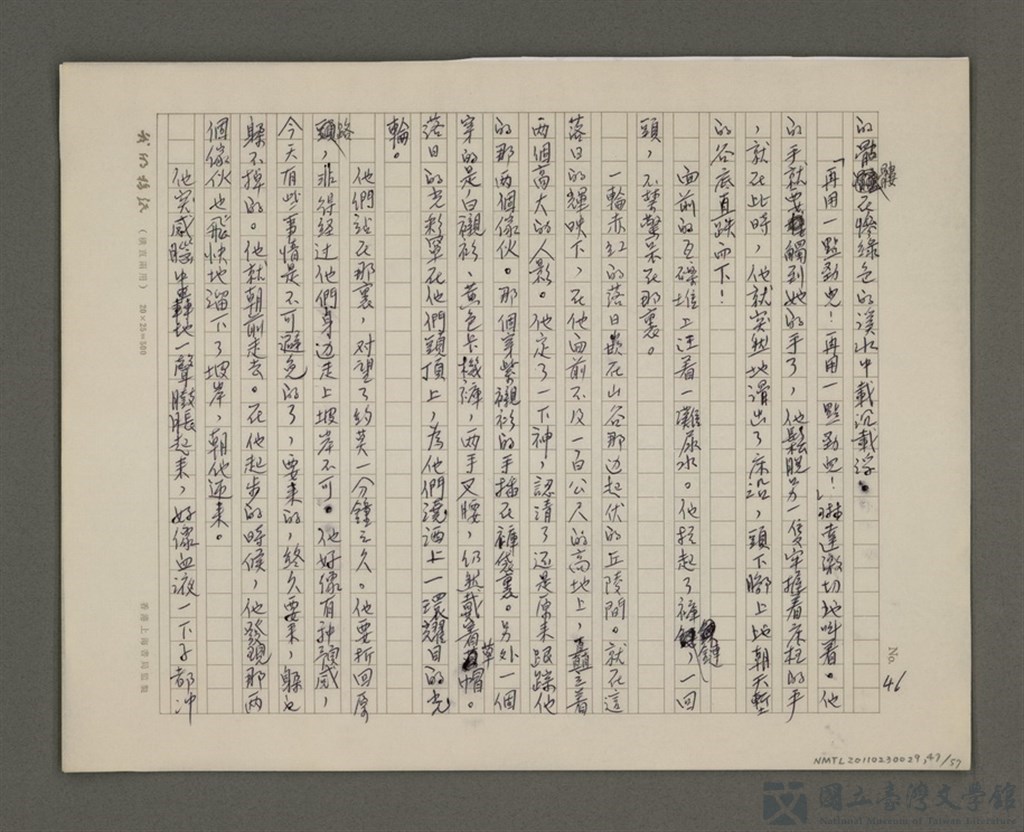 的骷髏在慘綠色的溪水中載沉載浮。
「再用一點勁兒！再用一點勁兒！」琳達激切地叫着。他
的手就要觸到她的手了，他鬆脫另一隻牢握着床柱的手
，就在此時，他就突然地滑出了床沿，頭下腳上地朝天塹
的谷底直跌而下！
面前的瓦礫堆上注着一灘尿水。他拉起了褲鏈，一回
頭，不禁驚呆在那裏。
一輪赤紅的落日嵌在山谷那边起伏的丘陵間。就在這
落日的輝映下，在他面前不及一百公尺的高地上，矗立着
兩個高大的人影。他定了一下神，認清了还是原來跟踪他
的那两個傢伙。那個穿紫襯衫的手插在褲袋裏。另外一個
穿的是白襯衫、黃色卡機褲，两手叉腰，仍然戴着草帽。
落日的光彩罩在他們頭頂上，為他們澆洒上一環耀目的光
輪。
他們站在那裏，对望了約莫一分鐘之久。他要折回原
路，非得经过他們身边走上坡岸不可。他好像有种預感，
今天有些事情是不可避免的了，要来的，終久要来，躲也
躲不掉的。他就朝前走去。在他起步的時候，他發現那两
個傢伙也飛快地溜下了坡岸，朝他迎来。
他突感腦中轟地一聲膨脹起来，好像血液一下子都冲
No. 46
（橫直兩用） 20×25=500
香港上海書局監製
NMTL20110230029,47/57
國立臺灣文學館
National Museum of Taiwan Literature